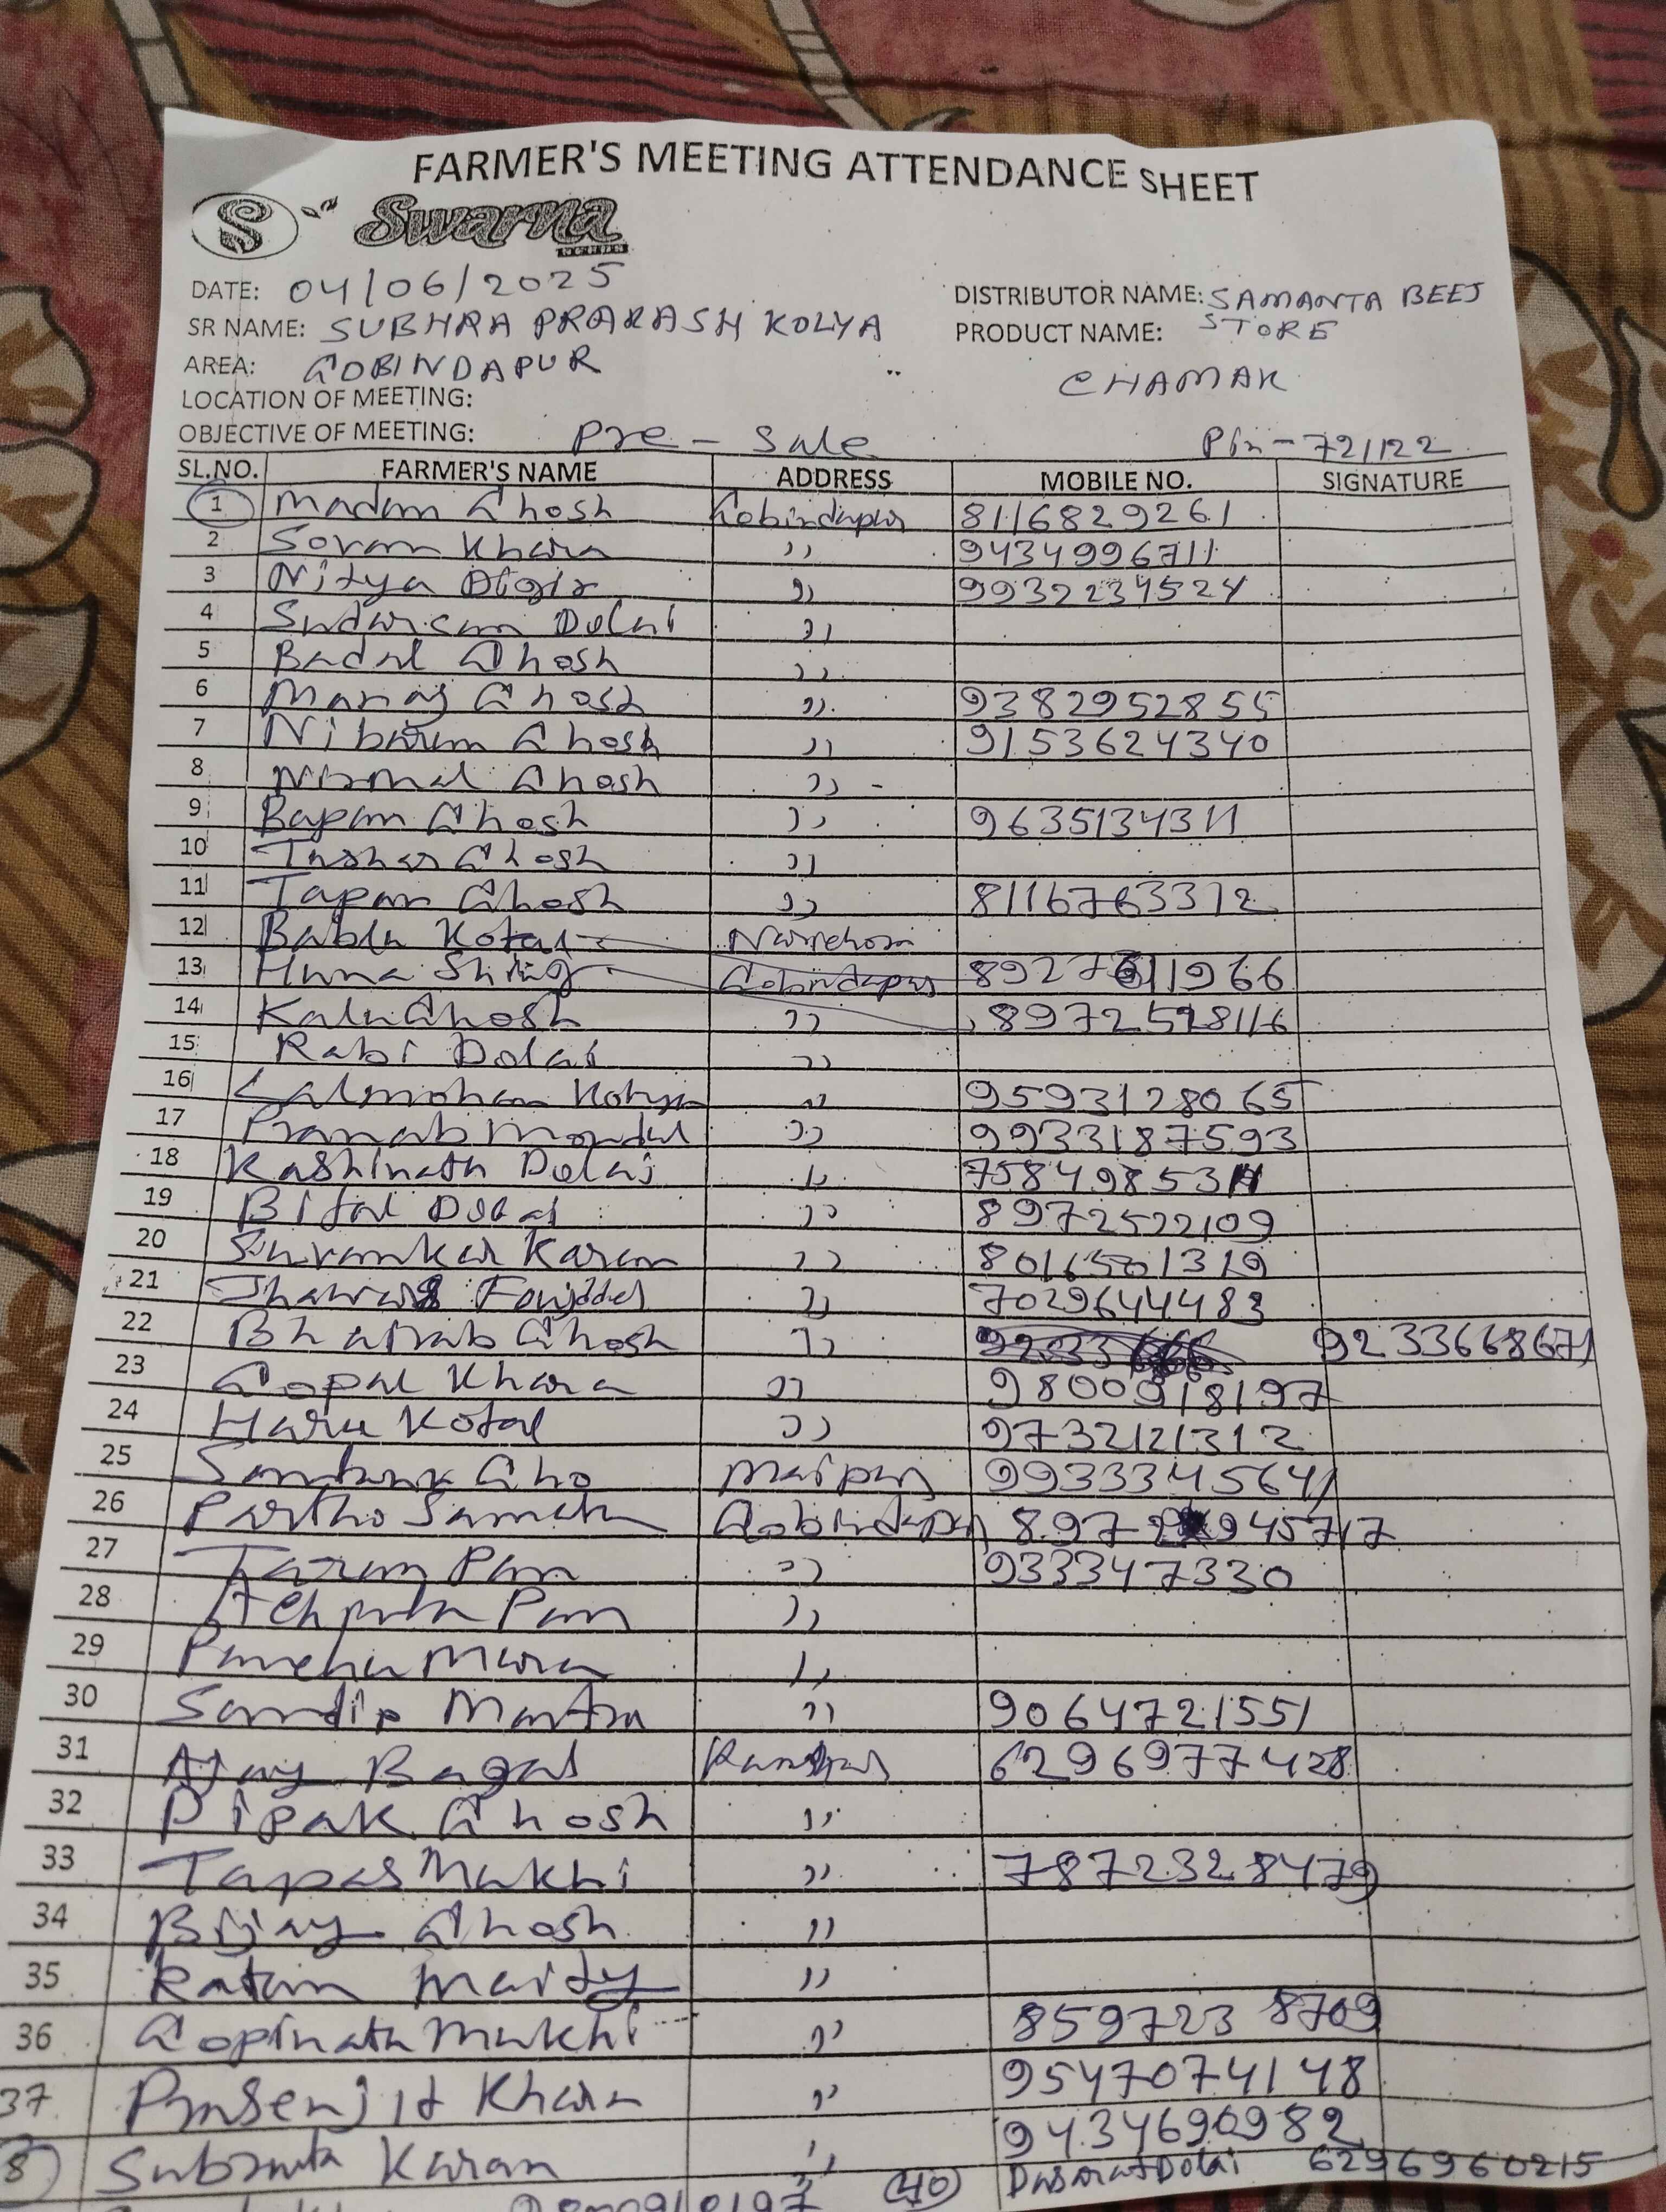 FARMER'S MEETING ATTENDANCE SHEET
S Swarna
DATE: 04/06/2025
DISTRIBUTOR NAME: SAMANTA BEEJ STORE
SR NAME: SUBHRA PRAKASH KOLYA
PRODUCT NAME: CHAMAK
AREA: GOBINDAPUR
LOCATION OF MEETING:
OBJECTIVE OF MEETING: Pre - Sale Pin - 721122
SL.NO. FARMER'S NAME ADDRESS MOBILE NO. SIGNATURE
1 Madan Ghosh Gobindapur 8116829261
2 Sovan Khara ,, 9434996711
3 Nitya Digir ,, 9932234524
4 Sudarsan Dolai ,,
5 Badal Ghosh ,,
6 Manas Ghosh ,, 9382952855
7 Nibaran Ghosh ,, 9153624340
8 Nirmal Ghosh ,, -
9 Bapan Ghosh ,, 9635134311
10 Tushar Ghosh ,,
11 Tapan Ghosh ,, 8116763312
12 Bablu Kotal
13 Gobindapur
14 Kalu Ghosh ,,
15 Rabi Dolai ,,
16 Lalmohan ,, 9593128065
17 Pranab Mondal ,, 9933187593
18 Kashinath Dolai ,,
19 Dolai ,, 8972522109
20 Karan ,,
21 ,, 7029644483
22 Bhairab Ghosh ,, 9233668671
23 Gopal Khara ,, 9800918197
24 Haru Kotal ,, 9732121312
25 Maipur 9933345641
26 Partho Samanta Gobindapur
27 Tarun Pan ,, 933347330
28 Pan ,,
29 ,,
30 Sandip Maitra ,, 9064721551
31 Ajay Bagal 6296977428
32 Dipak Ghosh ,,
33 Tapas Mukhi ,, 7872328479
34 Bijay Ghosh ,,
35 Ratan Maity ,,
36 Gopinath Mukhi ,, 8597238709
37 Prasenjit Khara ,, 9547074148
8 Subrata Karan ,, 9434690982
40 Dasarat Dolai 6296960215